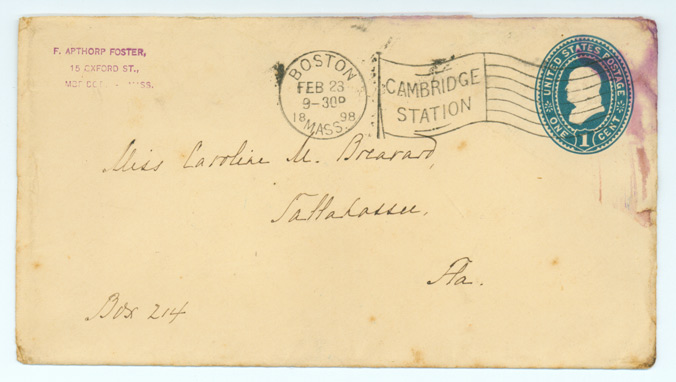 F. APTHORP FOSTER,
15 OXFORD ST.,
MASS.
BOSTON
FEB 23
9-30P
18 98
MASS.
CAMBRIDGE
STATION
UNITED STATES POSTAGE
ONE 1 CENT
Miss Caroline M. Brevard,
Tallahassee,
Fla.
Box 214